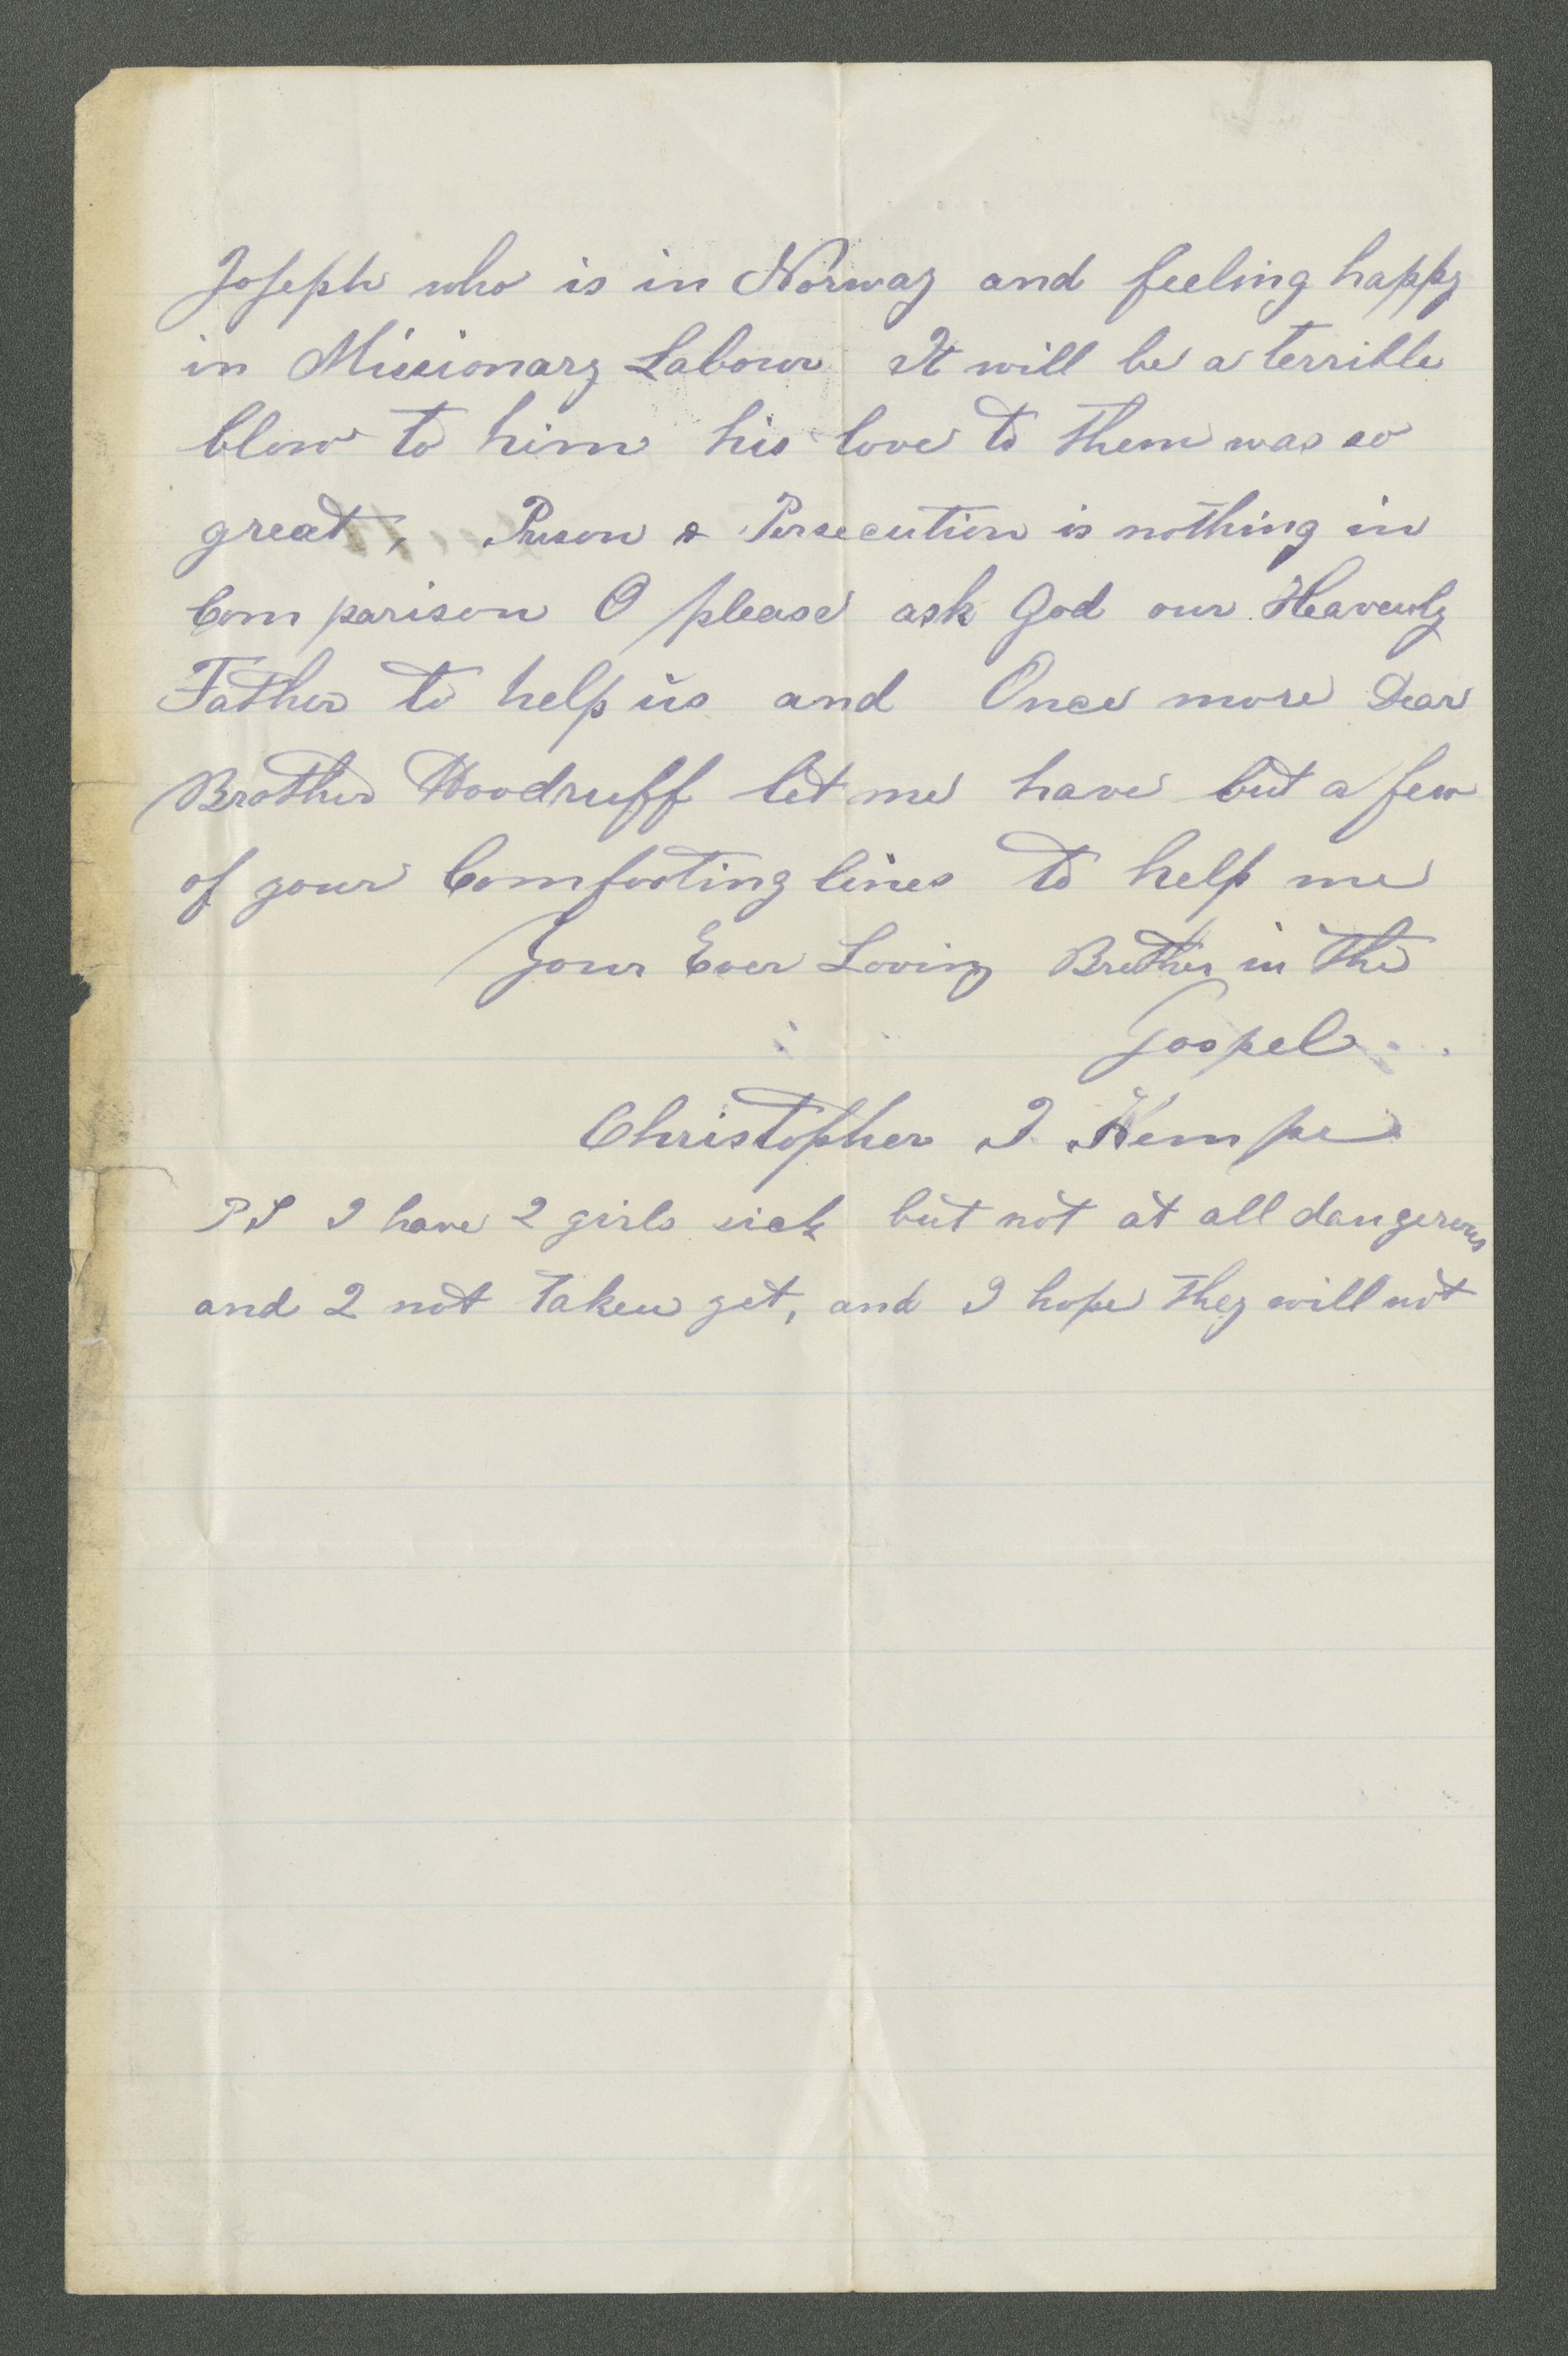 Joseph who is in Norway and feeling happy
in Missionary Labour It will be a terrible
blow to him his love to them was so
great, Prison & Persecution is nothing in
Comparison O please ask God our Heavenly
Father to help us and Once more Dear
Brother Woodruff let me have but a few
of your Comforting lines to help me
Your Ever Loving Brother in the
Gospel
Christopher J Kempe
PS I have 2 girls sick but not at all dangerous
and 2 not taken yet, and I hope they will not